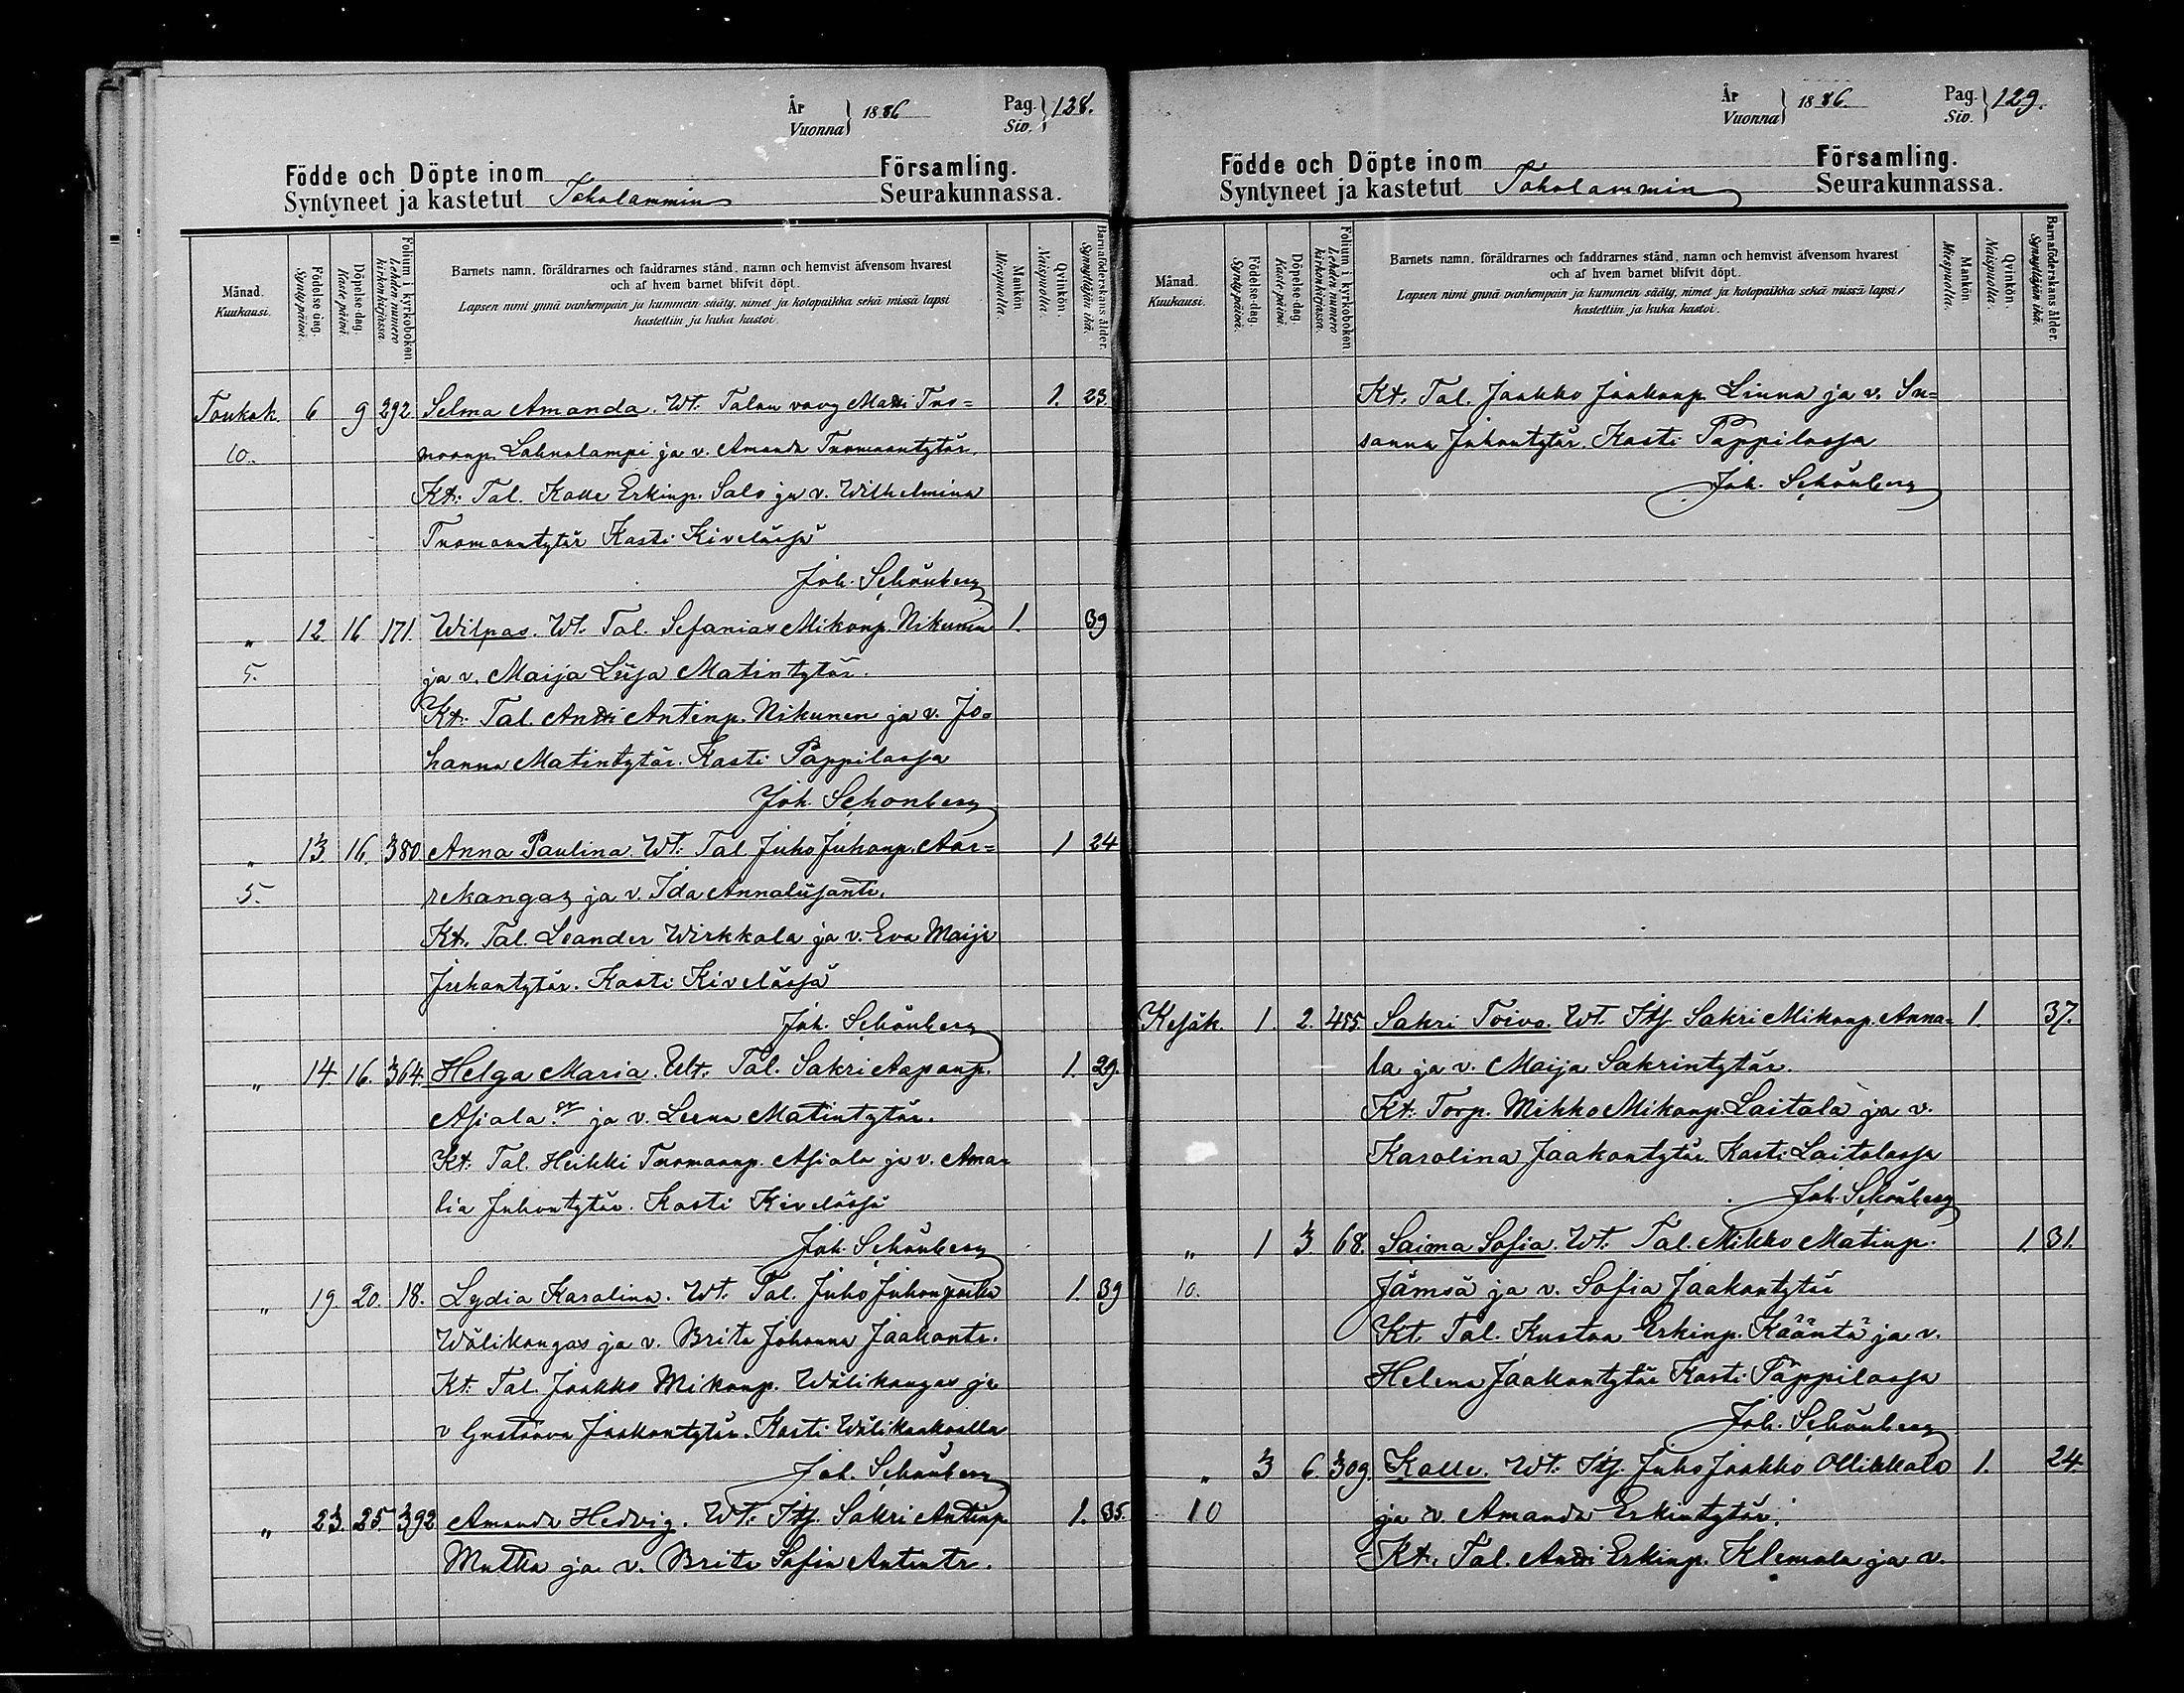 År
Vuonna } 1886 Pag.
Siv. } 128.
Födde och Döpte inom Församling.
Syntyneet ja kastetut Toholammin Seurakunnassa.
Månad.
Kuukausi.
Födelse-dag.
Synty päivä.
Döpelse-dag.
Kaste päivä.
Folium i kyrkoboken.
Lehden numero
kirkonkirjassa.
Barnets namn, föräldrarnes och faddrarnes stånd, namn och hemvist äfvensom hvarest
och af hvem barnet blifvit döpt.
Lapsen nimi ynnä vanhempain ja kummein sääty, nimet ja kotopaikka sekä missä lapsi
kastettiin ja kuka kastoi.
Mankön.
Miespuolia.
Qvinkön.
Naispuolia.
Barnaföderskans ålder.
Synnyttäjän ikä.
Toukok. 6 9 292 Selma Amanda. Wt: Talon vävy Matti Tuo= 1. 23.
10. monp. Lahnalampi ja v. Amanda Tuomaantytär.
Kt: Tal. Kalle Erkinp. Salo ja v. Wilhelmina
Tuomaantytär Kasti Kivelässä
Joh. Schönberg
„ 12 16 171. Wilpas. Wt. Tal. Sefanias Mikonp. Nikunen 1. 39
5. ja v. Maija Liisa Matintytär.
Kt: Tal. Antti Antinp. Nikunen ja v. Jo=
hanna Matintytär. Kasti Pappilassa
Joh. Schönberg
„ 13. 16. 380 Anna Paulina. Wt: Tal Juho Juhonp. Aar= 1 24
5. rekangas ja v. Ida Annaliisantr.
Kt. Tal. Leander Wirkkala ja v. Eva Maija
Juhontytär. Kasti Kivelässä
Joh. Schönberg
„ 14. 16. 364. Helga Maria. Wt: Tal. Sakri Aaponp. 1. 29.
Asiala ja v. Leena Matintytär.
Kt: Tal. Heikki Tuomaanp. Asiala ja v. Ama=
lia Juhontytär. Kasti Kivelässä
Joh. Schönberg
„ 19. 20. 18. Lydia Karolina. Wt. Tal. Juho Juhonpoika 1. 39
Wälikangas ja v. Brita Johanna Jaakontr.
Kt: Tal. Jaakko Mikonp. Wälikangas ja
v Gustaava Jaakontytär. Kasti Wälikankaalla
Joh. Schönberg
„ 23. 25. 392 Amanda Hedvig. Wt: Itj. Sakri Antinp. 1. 35.
Mutka ja v. Brita Sofia Antintr.
År
Vuonna } 1886. Pag.
Siv. } 129.
Födde och Döpte inom Församling.
Syntyneet ja kastetut Toholammin Seurakunnassa.
Månad.
Kuukausi.
Födelse-dag.
Synty päivä.
Döpelse-dag.
Kaste päivä.
Folium i kyrkoboken.
Lehden numero
kirkonkirjassa.
Barnets namn, föräldrarnes och faddrarnes stånd, namn och hemvist äfvensom hvarest
och af hvem barnet blifvit döpt.
Lapsen nimi ynnä vanhempain ja kummein sääty, nimet ja kotopaikka sekä missä lapsi
kastettiin ja kuka kastoi.
Mankön.
Miespuolia.
Qvinkön.
Naispuolia.
Barnaföderskans ålder.
Synnyttäjän ikä.
Kt. Tal. Jaakko Jaakonp. Linna ja v. Su=
sanna Juhontytär. Kasti Pappilassa
Joh. Schönberg
Kesäk. 1. 2. 455. Sakri Toivo. Wt. Itj. Sakri Mikonp. Anna= 1. 37.
la ja v. Maija Sakrintytär.
Kt: Torp. Mikko Mikonp. Laitala ja v.
Karolina Jaakontytär. Kasti Laitalassa
Joh. Schönberg
„ 1 3 68. Saima Sofia. Wt: Tal. Mikko Matinp. 1. 31.
10. Jämsä ja v. Sofia Jaakontytär
Kt. Tal. Kustaa Erkinp. Kääntä ja v.
Helena Jaakontytär Kasti Pappilassa
Joh. Schönberg
„ 3 6. 309. Kalle. Wt: Itj. Juho Jaakko Ollikkala 1. 24.
10 ja v. Amanda Erkintytär.
Kt. Tal. Antti Erkinp. Klemola ja v.